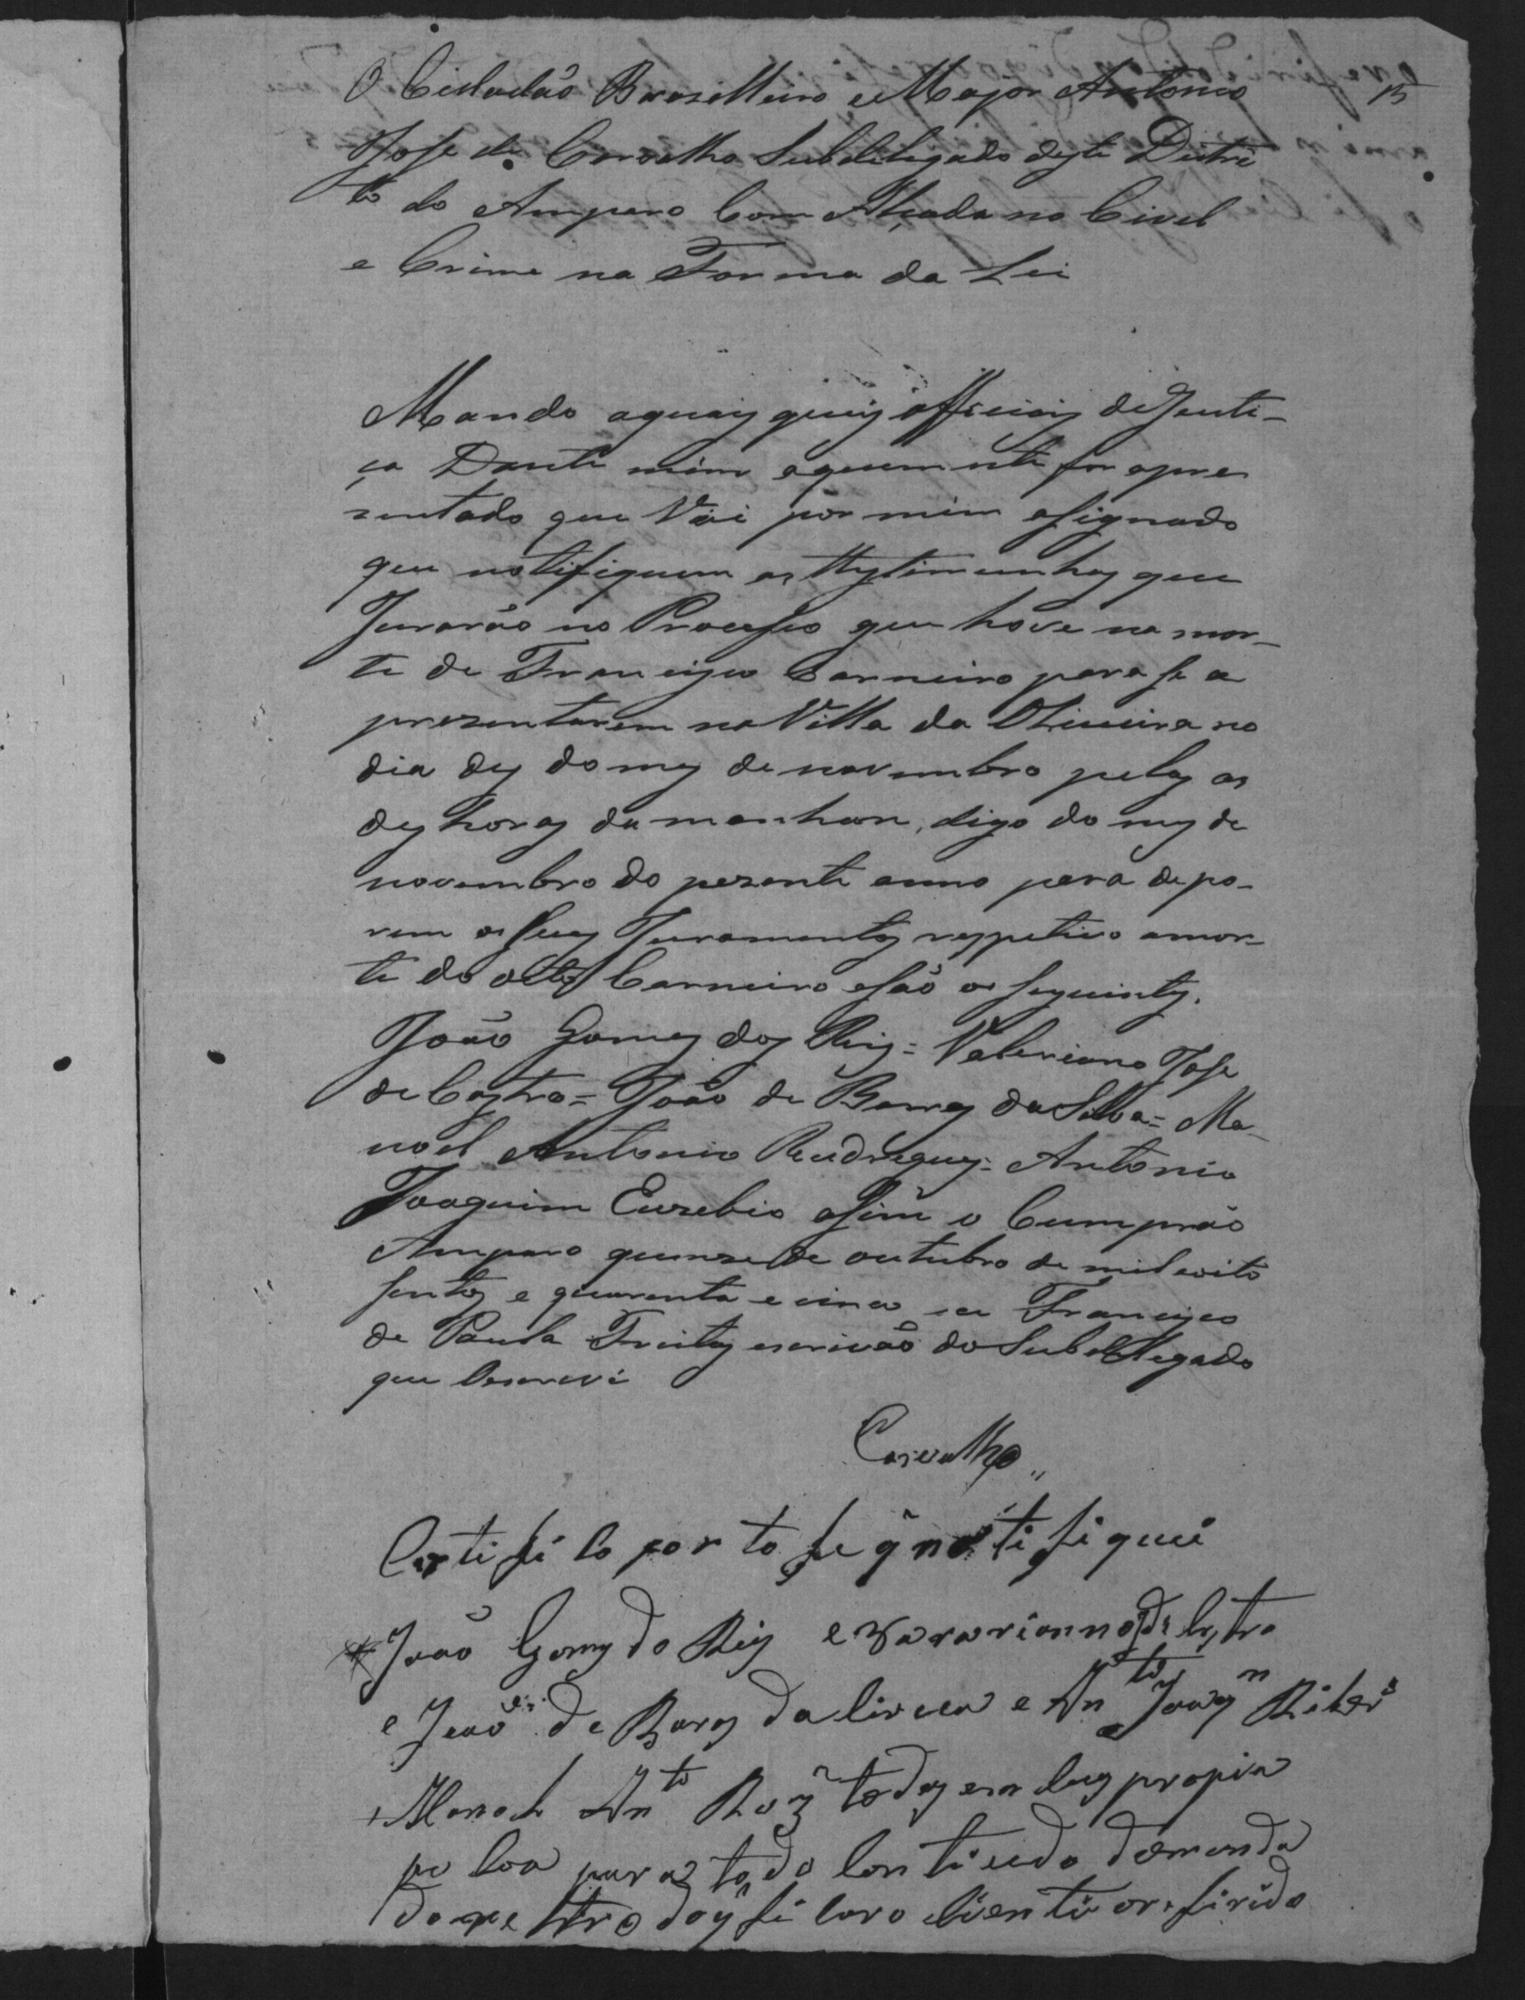 O Cidadão Brazilleiro e Major Antonio
15
Jose de Carvalho Subdelegado deste Distri
to do Amparo Com Alçada no Civel
e Crime na Forma da Lei
Mando aquais quer officiais de Justi-
ça Danti mim aquem este for apre
zentado que Vai por mim asignado
que notifiquem as testimunhas que
Jurarão no Processo que hove na mor-
te de Francisco Carneiro para se a
prezentarem na Villa da Oliveira no
dia des do mes de novembro pelas as
des horas da manhan, digo do mes de
novembro do perzente anno para depo-
rem os seus Juramentos respetivo amor-
te do dito Carneiro esão os seguintes.
João Gomes dos Reis = Valeriano Jose
de Castro = João de Barros da Silva = Ma-
noel Antonio Rudrigues = Antonio
Joaquim Euzebio asim o Cumprão
Amparo quinze de outubro de mil eoito
sentos e quarenta e cinco eu Francisco
de Paula Freitas escrivão do Subdellegado
que Escrevi
Carvalho
Certifico porto fe q̃ notifiquei
João Gomes do Reis e Vararianno Je de Castro
e João de Baros da Circa e Anto Joaqn Ribero
Manoel Anto Roiz todos em suas propia
pecoa para todo Contiudo domanda
do retro doy fi caro cienti orefirido